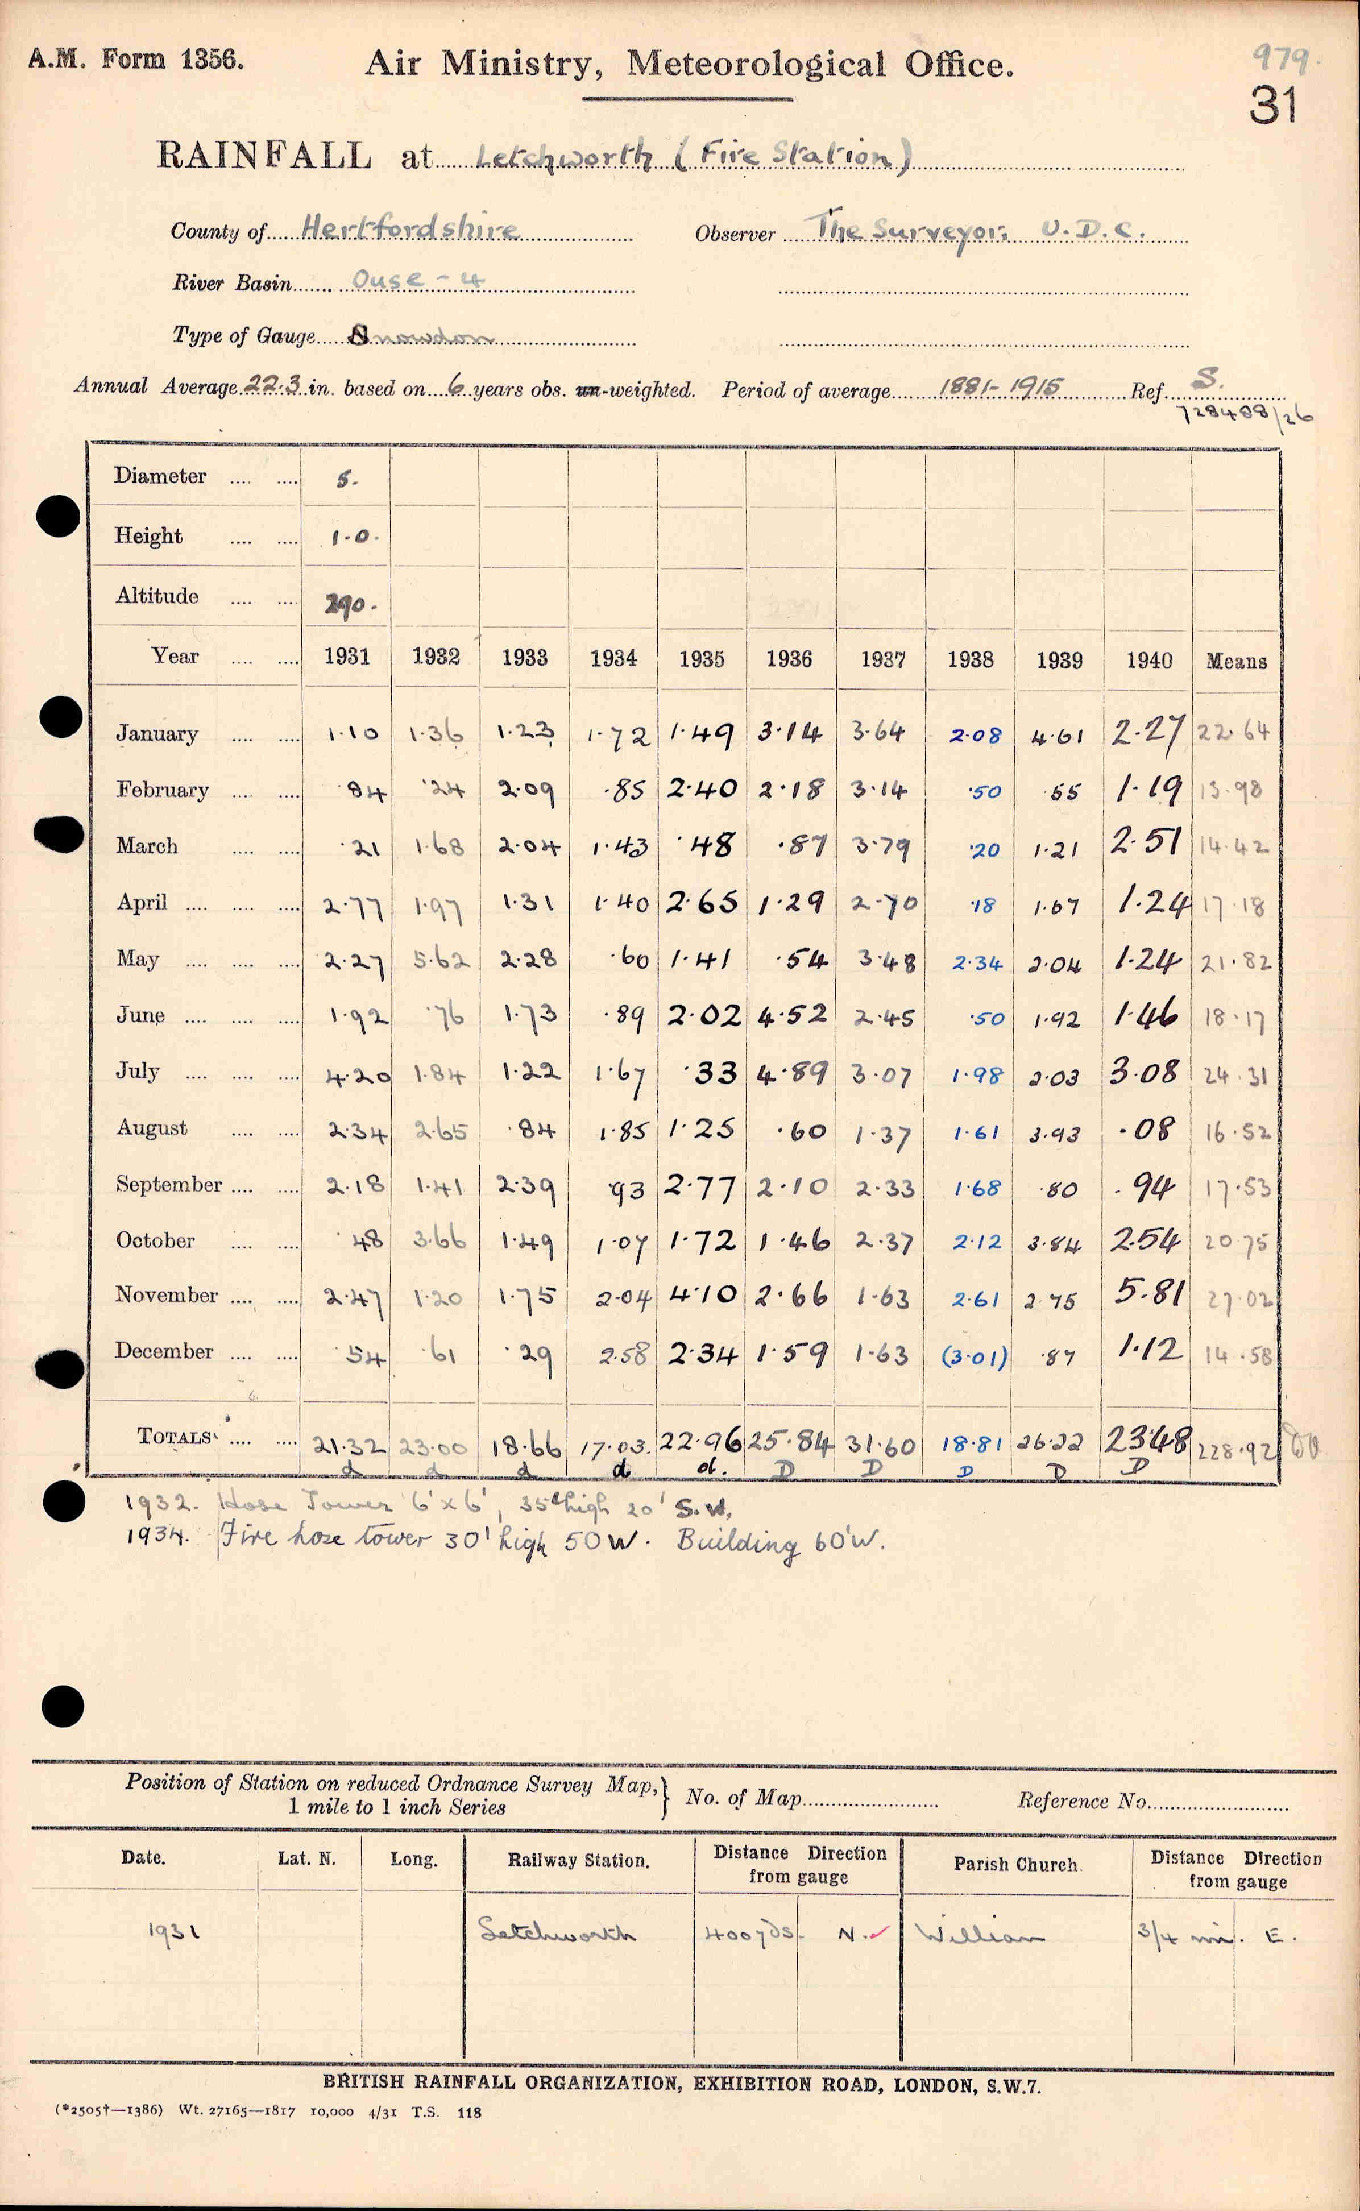 A.M. Form 1356.
Air Ministry, Meteorological Office.
979.
31
RAINFALL at Letchworth (Fire Station)
County of Hertfordshire Observer The Surveyor, U.D.C.
River Basin Ouse - 4
Type of Gauge Snowdon
Annual Average 22.3 in. based on 6 years obs. un-weighted. Period of average 1881-1915 Ref. S.
728488/26
Diameter 5.
Height 1.0.
Altitude 290.
Year 1931 1932 1933 1934 1935 1936 1937 1938 1939 1940 Means
January 1.10 1.36 1.23 1.72 1.49 3.14 3.64 2.08 4.61 2.27 22.64
February .84 .24 2.09 .85 2.40 2.18 3.14 .50 .55 1.19 13.98
March .21 1.68 2.04 1.43 .48 .87 3.79 .20 1.21 2.51 14.42
April 2.77 1.97 1.31 1.40 2.65 1.29 2.70 .18 1.67 1.24 17.18
May 2.27 5.62 2.28 .60 1.41 .54 3.48 2.34 2.04 1.24 21.82
June 1.92 .76 1.73 .89 2.02 4.52 2.45 .50 1.92 1.46 18.17
July 4.20 1.84 1.22 1.67 .33 4.89 3.07 1.98 2.03 3.08 24.31
August 2.34 2.65 .84 1.85 1.25 .60 1.37 1.61 3.93 .08 16.52
September 2.18 1.41 2.39 .93 2.77 2.10 2.33 1.68 .80 .94 17.53
October .48 3.66 1.49 1.07 1.72 1.46 2.37 2.12 3.84 2.54 20.75
November 2.47 1.20 1.75 2.04 4.10 2.66 1.63 2.61 2.75 5.81 27.02
December .54 .61 .29 2.58 2.34 1.59 1.63 (3.01) .87 1.12 14.58
TOTALS 21.32 23.00 18.66 17.03. 22.96 25.84 31.60 18.81 26.22 23.48 228.92
d d d d d. D D D D D
1932. Hose Tower 6'x6', 35' high 20' S.W.
1934. Fire hose tower 30' high 50 W. Building 60'W.
Position of Station on reduced Ordnance Survey Map, 1 mile to 1 inch Series } No. of Map Reference No.
Date. Lat. N. Long. Railway Station. Distance Direction from gauge Parish Church. Distance Direction from gauge
1931 Letchworth 400 yds. N. Willian 3/4 mi. E.
BRITISH RAINFALL ORGANIZATION, EXHIBITION ROAD, LONDON, S.W.7.
(*2505†—1386) Wt. 27165—1817 10,000 4/31 T.S. 118